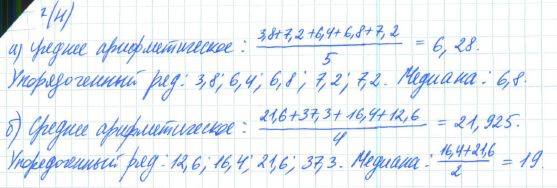 7(н)
а) Среднее арифметическое: (3,8+7,2+6,4+6,8+7,2)/5 = 6,28.
Упорядоченный ряд: 3,8; 6,4; 6,8; 7,2; 7,2. Медиана: 6,8.
б) Среднее арифметическое: (21,6+37,3+16,4+12,6)/4 = 21,925.
Упоредоченный ряд: 12,6; 16,4; 21,6; 37,3. Медиана: (16,4+21,6)/2 = 19.